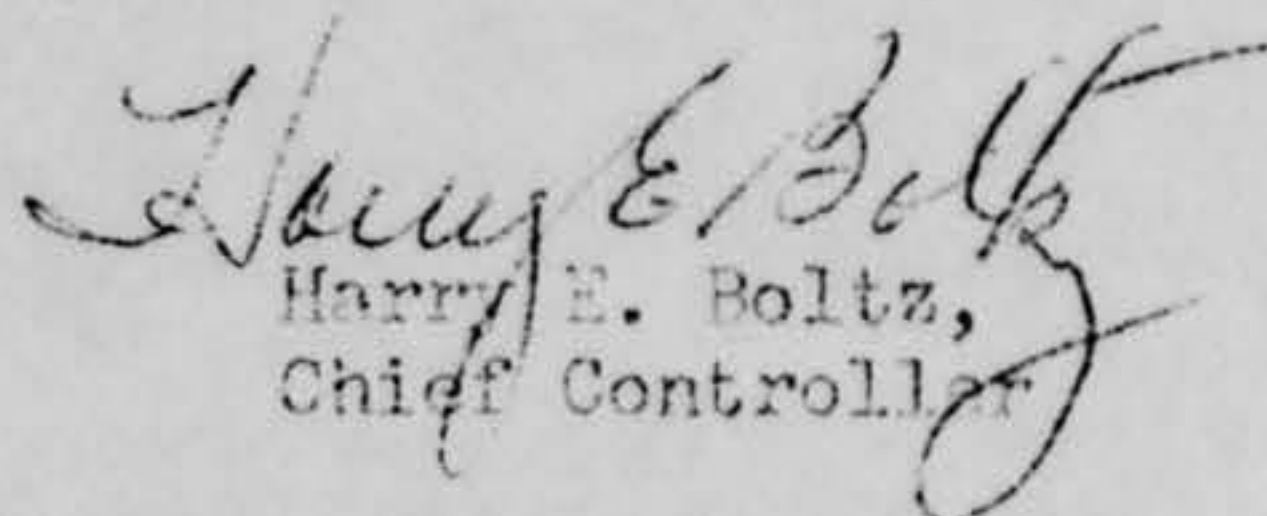 Harry E. Boltz
Harry E. Boltz,
Chief Controller